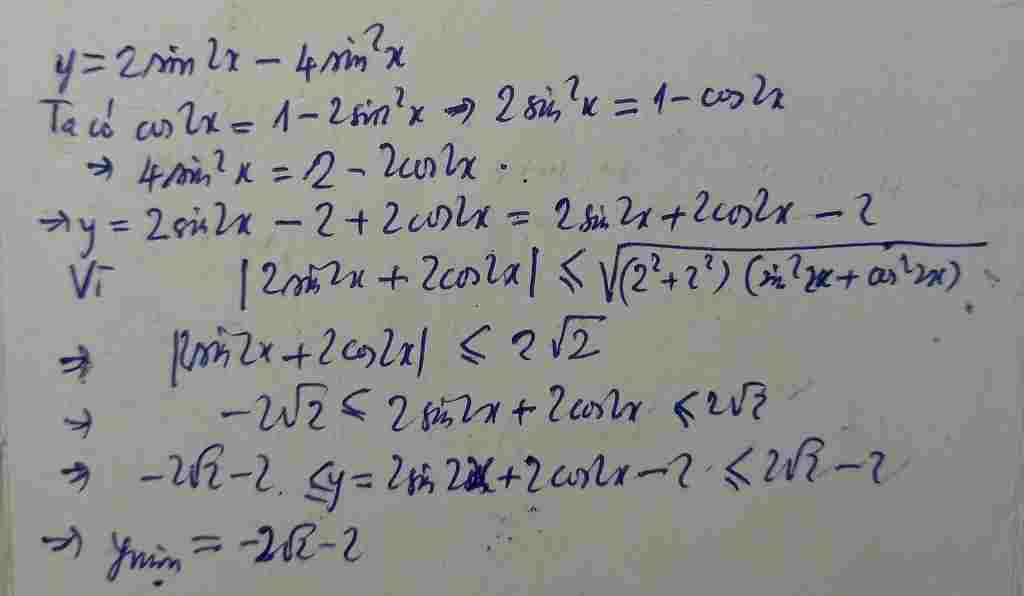 y = 2sin2x − 4sin²x
Ta có cos2x = 1 − 2sin²x → 2sin²x = 1 − cos2x
→ 4sin²x = 2 − 2cos2x.
→ y = 2sin2x − 2 + 2cos2x = 2sin2x + 2cos2x − 2
Vì |2sin2x + 2cos2x| ≤ √((2²+2²)(sin²2x + cos²2x))
⇒ |2sin2x + 2cos2x| ≤ 2√2
→ −2√2 ≤ 2sin2x + 2cos2x ≤ 2√2
⇒ −2√2 − 2. ≤ y = 2sin2x + 2cos2x − 2 ≤ 2√2 − 2
⇒ ymin = −2√2 − 2